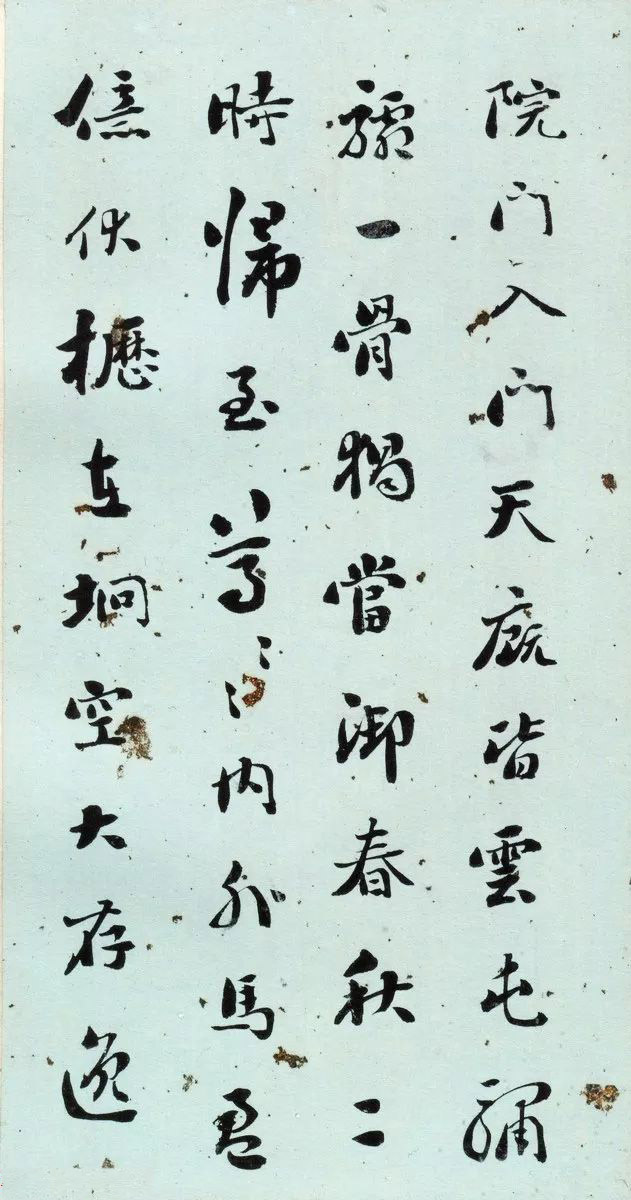 院門入門天廐皆雲屯驌
驦一骨獨當御春秋二
時歸至尊〻〻内外馬盈
億伏櫪在坰空大存逸